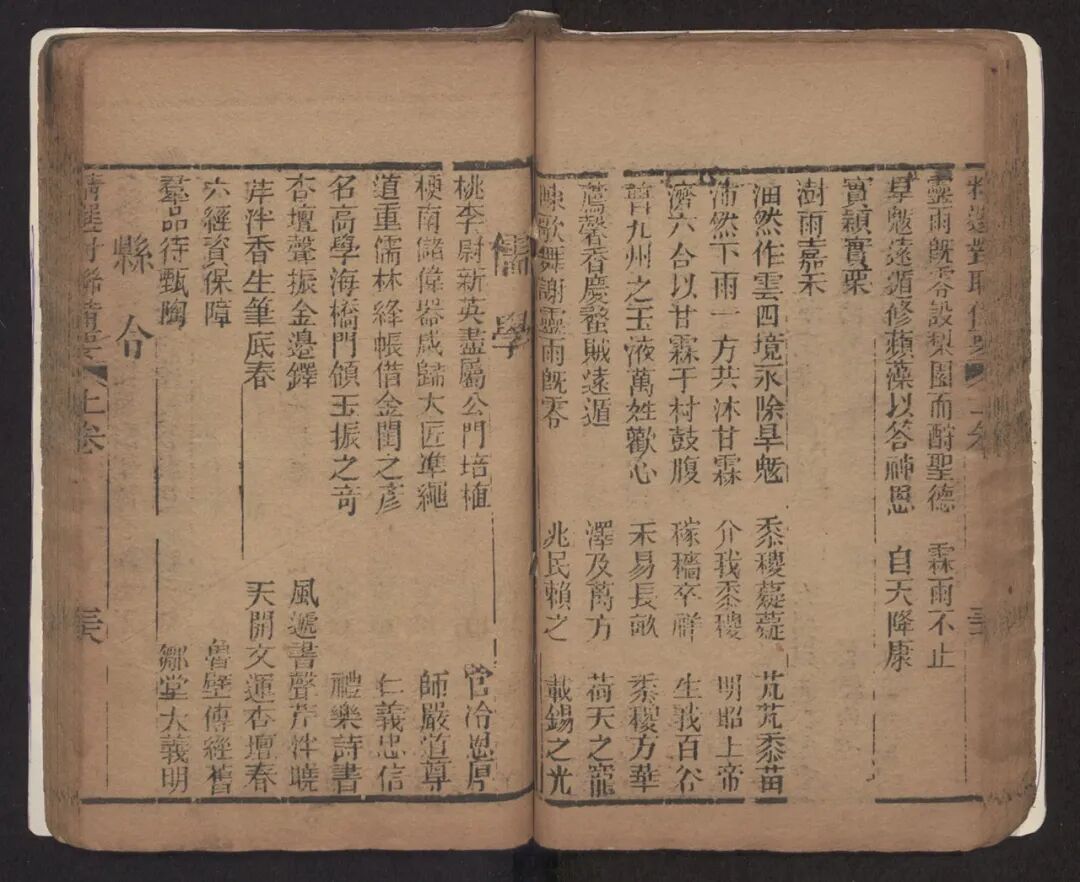 靈雨既零設梨園而酧聖德 霖雨不止
旱魃遠遁修蘋藻以答神恩 自天降康
實穎實栗
澍雨嘉禾
油然作雲四境永除旱魃 黍稷薿薿 芃芃黍苗
沛然下雨一方共沐甘霖 介我黍稷 明昭上帝
濟六合以甘霖千村鼓腹 稼穡卒痒 生我百谷
普九州之玉液萬姓歡心 禾易長畝 黍稷方華
薦馨香慶蝥賊遠遁 澤及萬方 荷天之寵
陳歌舞謝靈雨既零 兆民賴之 載錫之光
儒學
桃李尉新英盡屬公門培植 官冷恩厚
梗南儲偉器咸歸大匠凖繩 師嚴道尊
道重儒林絳帳借金閨之彥 仁義忠信
名高學海橋門領玉振之奇 禮樂詩書
杏壇聲振金邊鐸 風遞書聲芹泮曉
芹泮香生筆底春 天開文運杏壇春
六經資保障 魯壁傳經舊
羣品待甄陶 鄒堂大義明
縣令
精選對聯 上卷